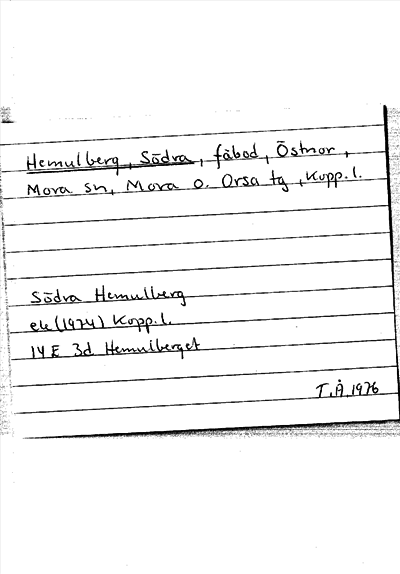 Hemulberg, Södra, fäbod, Östnor,
Mora sn, Mora o. Orsa tg, Kopp. l.
Södra Hemulberg
ek (1974) Kopp. l.
14 E 3d Hemulberget
T.Å 1976